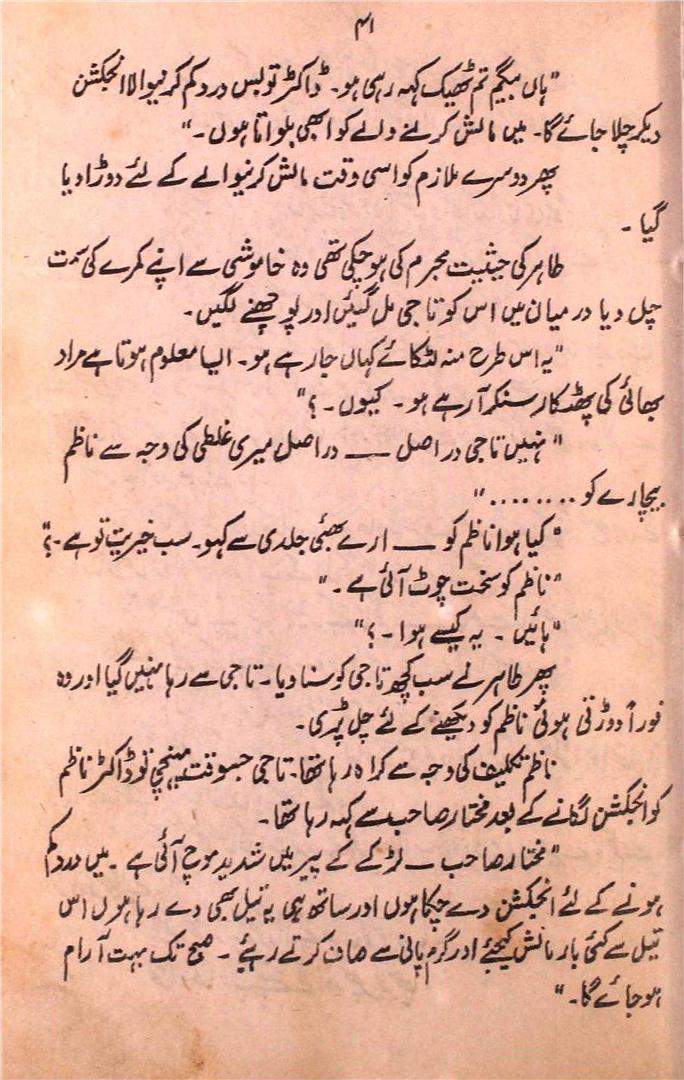 ۴۱
"ہاں بیگم تم ٹھیک کہہ رہی ہو۔ ڈاکٹر تو بس درد کم کرنیوالا انجکشن
دیکر چلا جائے گا۔ میں مالش کرلنے والے کو ابھی بلواتا ہوں۔"
پھر دوسرے ملازم کو اسی وقت مالش کرنیوالے کے لئے دوڑا دیا
گیا۔
طاہر کی حیثیت مجرم کی ہو چکی تھی وہ خاموشی سے اپنے کمرے کی سمت
چل دیا درمیان میں اس کو تاجی مل گئیں اور پوچھنے لگیں۔
"یہ اس طرح منہ لٹکائے کہاں جا رہے ہو۔ ایسا معلوم ہوتا ہے مراد
بھائی کی پھٹکار سنکر آ رہے ہو۔ کیوں۔؟"
"نہیں تاجی دراصل ــــ دراصل میری غلطی کی وجہ سے ناظم
بیچارے کو ........"
"کیا ہوا ناظم کو ــــ ارے بھئی جلدی سے کہو۔ سب خیریت تو ہے۔؟"
"ناظم کو سخت چوٹ آئی ہے۔"
"ہائیں۔ یہ کیسے ہوا۔؟"
پھر طاہر نے سب کچھ تاجی کو سنا دیا۔ تاجی سے رہا نہیں گیا اور وہ
فوراً دوڑتی ہوئی ناظم کو دیکھنے کے لئے چل پڑی۔
ناظم تکلیف کی وجہ سے کراہ رہا تھا۔ تاجی جسوقت پہنچی تو ڈاکٹر ناظم
کو انجکشن لگانے کے بعد مختار صاحب سے کہہ رہا تھا۔
"مختار صاحب ــــ لڑکے کے پیر میں شدید موچ آئی ہے۔ میں درد کم
ہونے کے لئے انجکشن دے چکا ہوں اور ساتھ ہی یہ تیل بھی دے رہا ہوں اس
تیل سے کئی بار مالش کیجئے اور گرم پانی سے صاف کرتے رہیئے۔ صبح تک بہت آرام
ہو جائے گا۔"